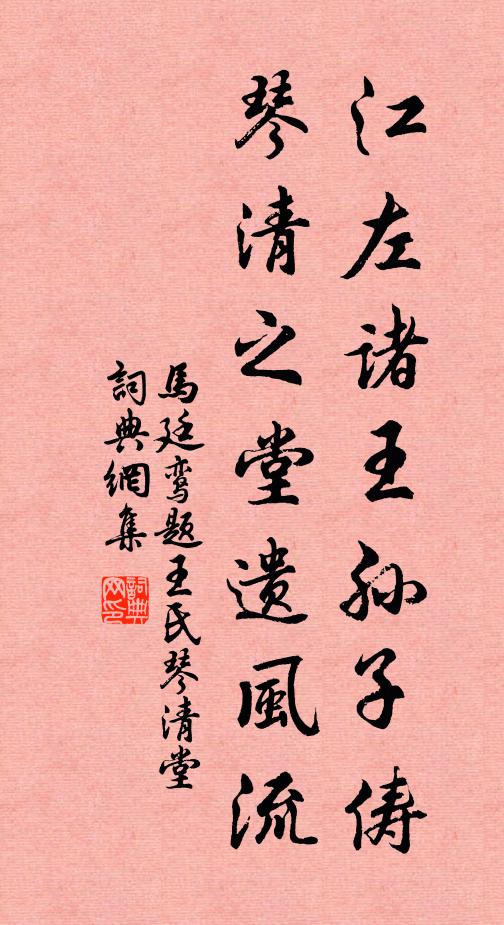 江左诸王孙子俦
琴清之堂遗風流
馬廷鸾题王氏琴清堂
詞典網集
詞典網印